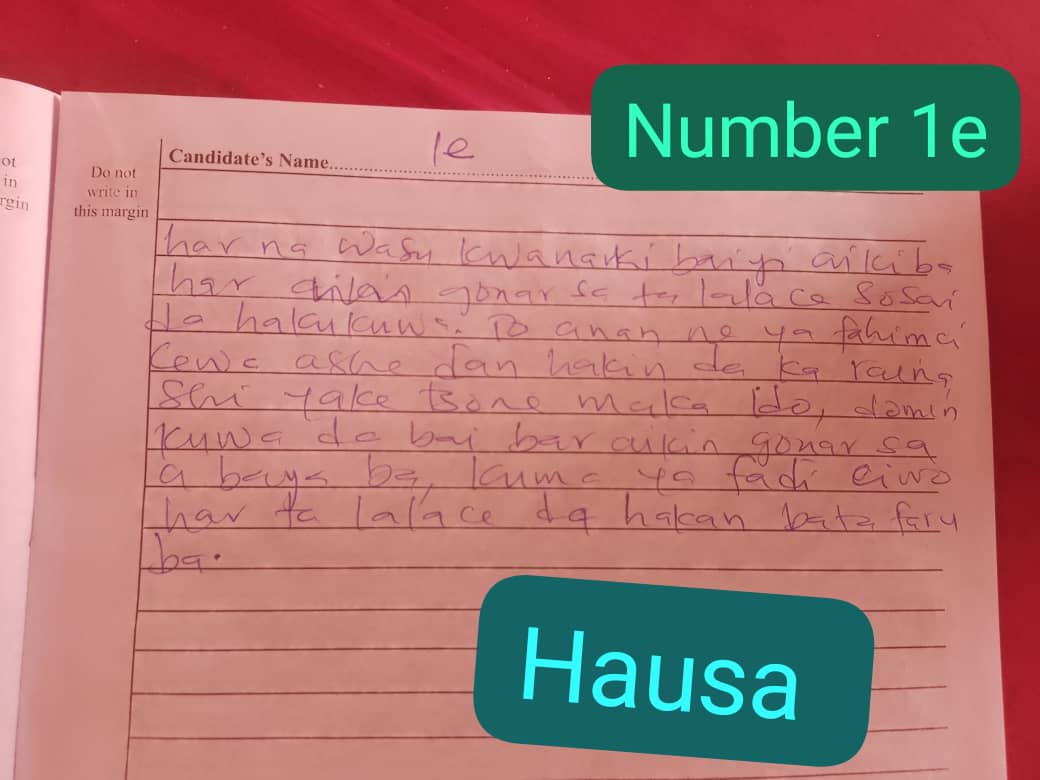 Number 1e
ot
in
rgin
Do not
write in
this margin
Candidate's Name........................
1e
har na wasu kwanaki baiyi aiki ba
har aikin gonar sa ta lalace sosai
da hakukuwa. To anan ne ya fahimci
cewa ashe dan hakin da ka raina
shi yake tsone maka ido, domin
kuwa da bai bar aikin gonar sa
a baya ba, kuma ya fadi ciwo
har ta lalace da hakan bata faru
ba.
Hausa